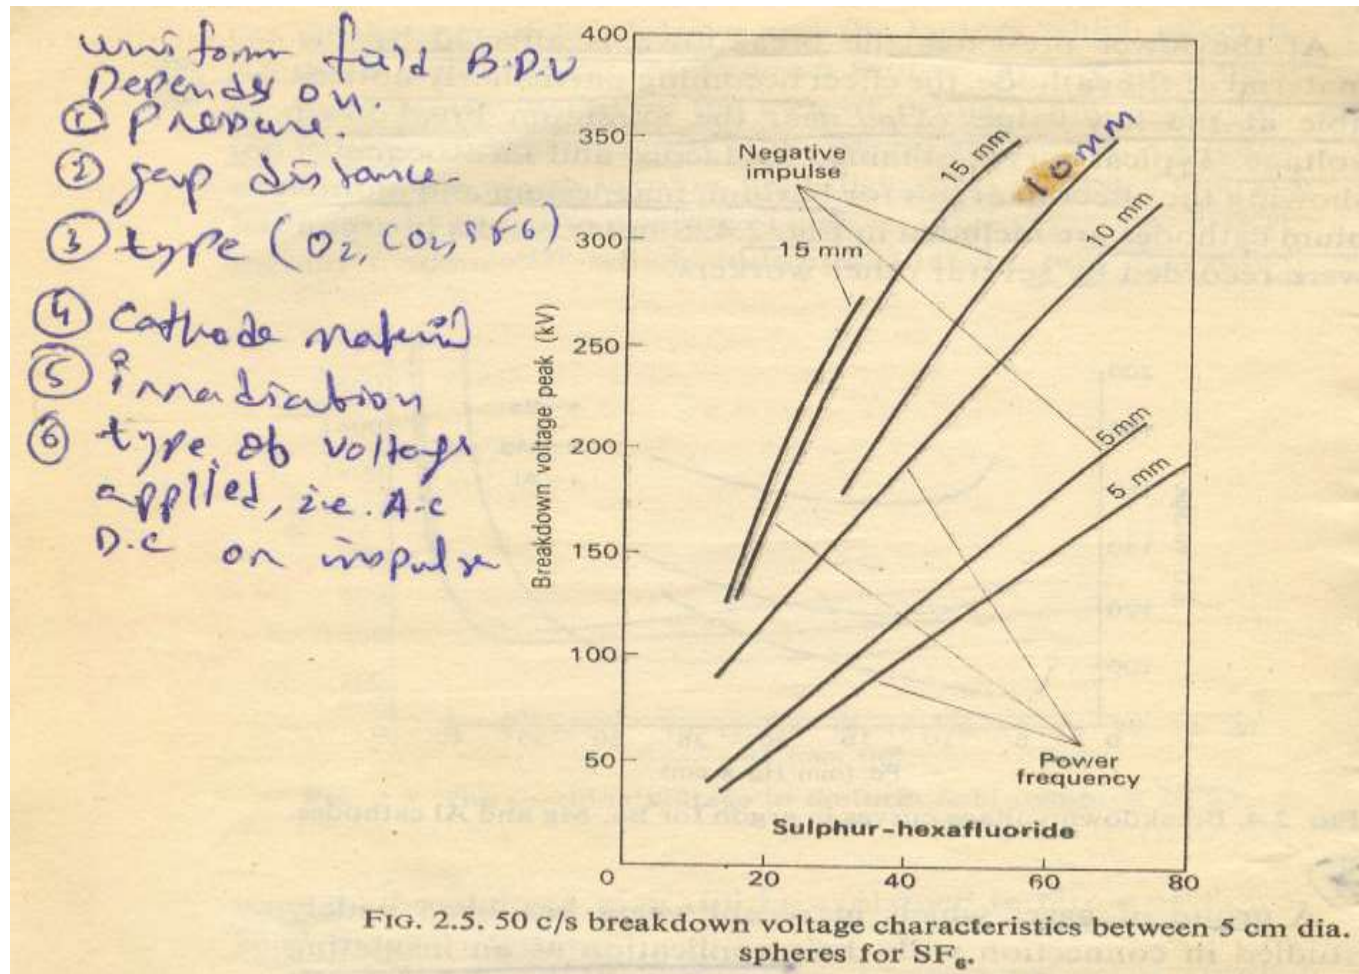 uniform field B.D.V
Depends on.
① Pressure.
② gap distance
③ type (O2, CO2, SF6)
④ Cathode material
⑤ irradiation
⑥ type of voltage
applied, i.e. A.C
D.C or impulse
400
350
300
250
200
150
100
50
0
20
40
60
80
Breakdown voltage peak (kV)
Negative
impulse
15 mm
15 mm
10mm
10 mm
5mm
5 mm
Power
frequency
Sulphur-hexafluoride
FIG. 2.5. 50 c/s breakdown voltage characteristics between 5 cm dia.
spheres for SF₆.